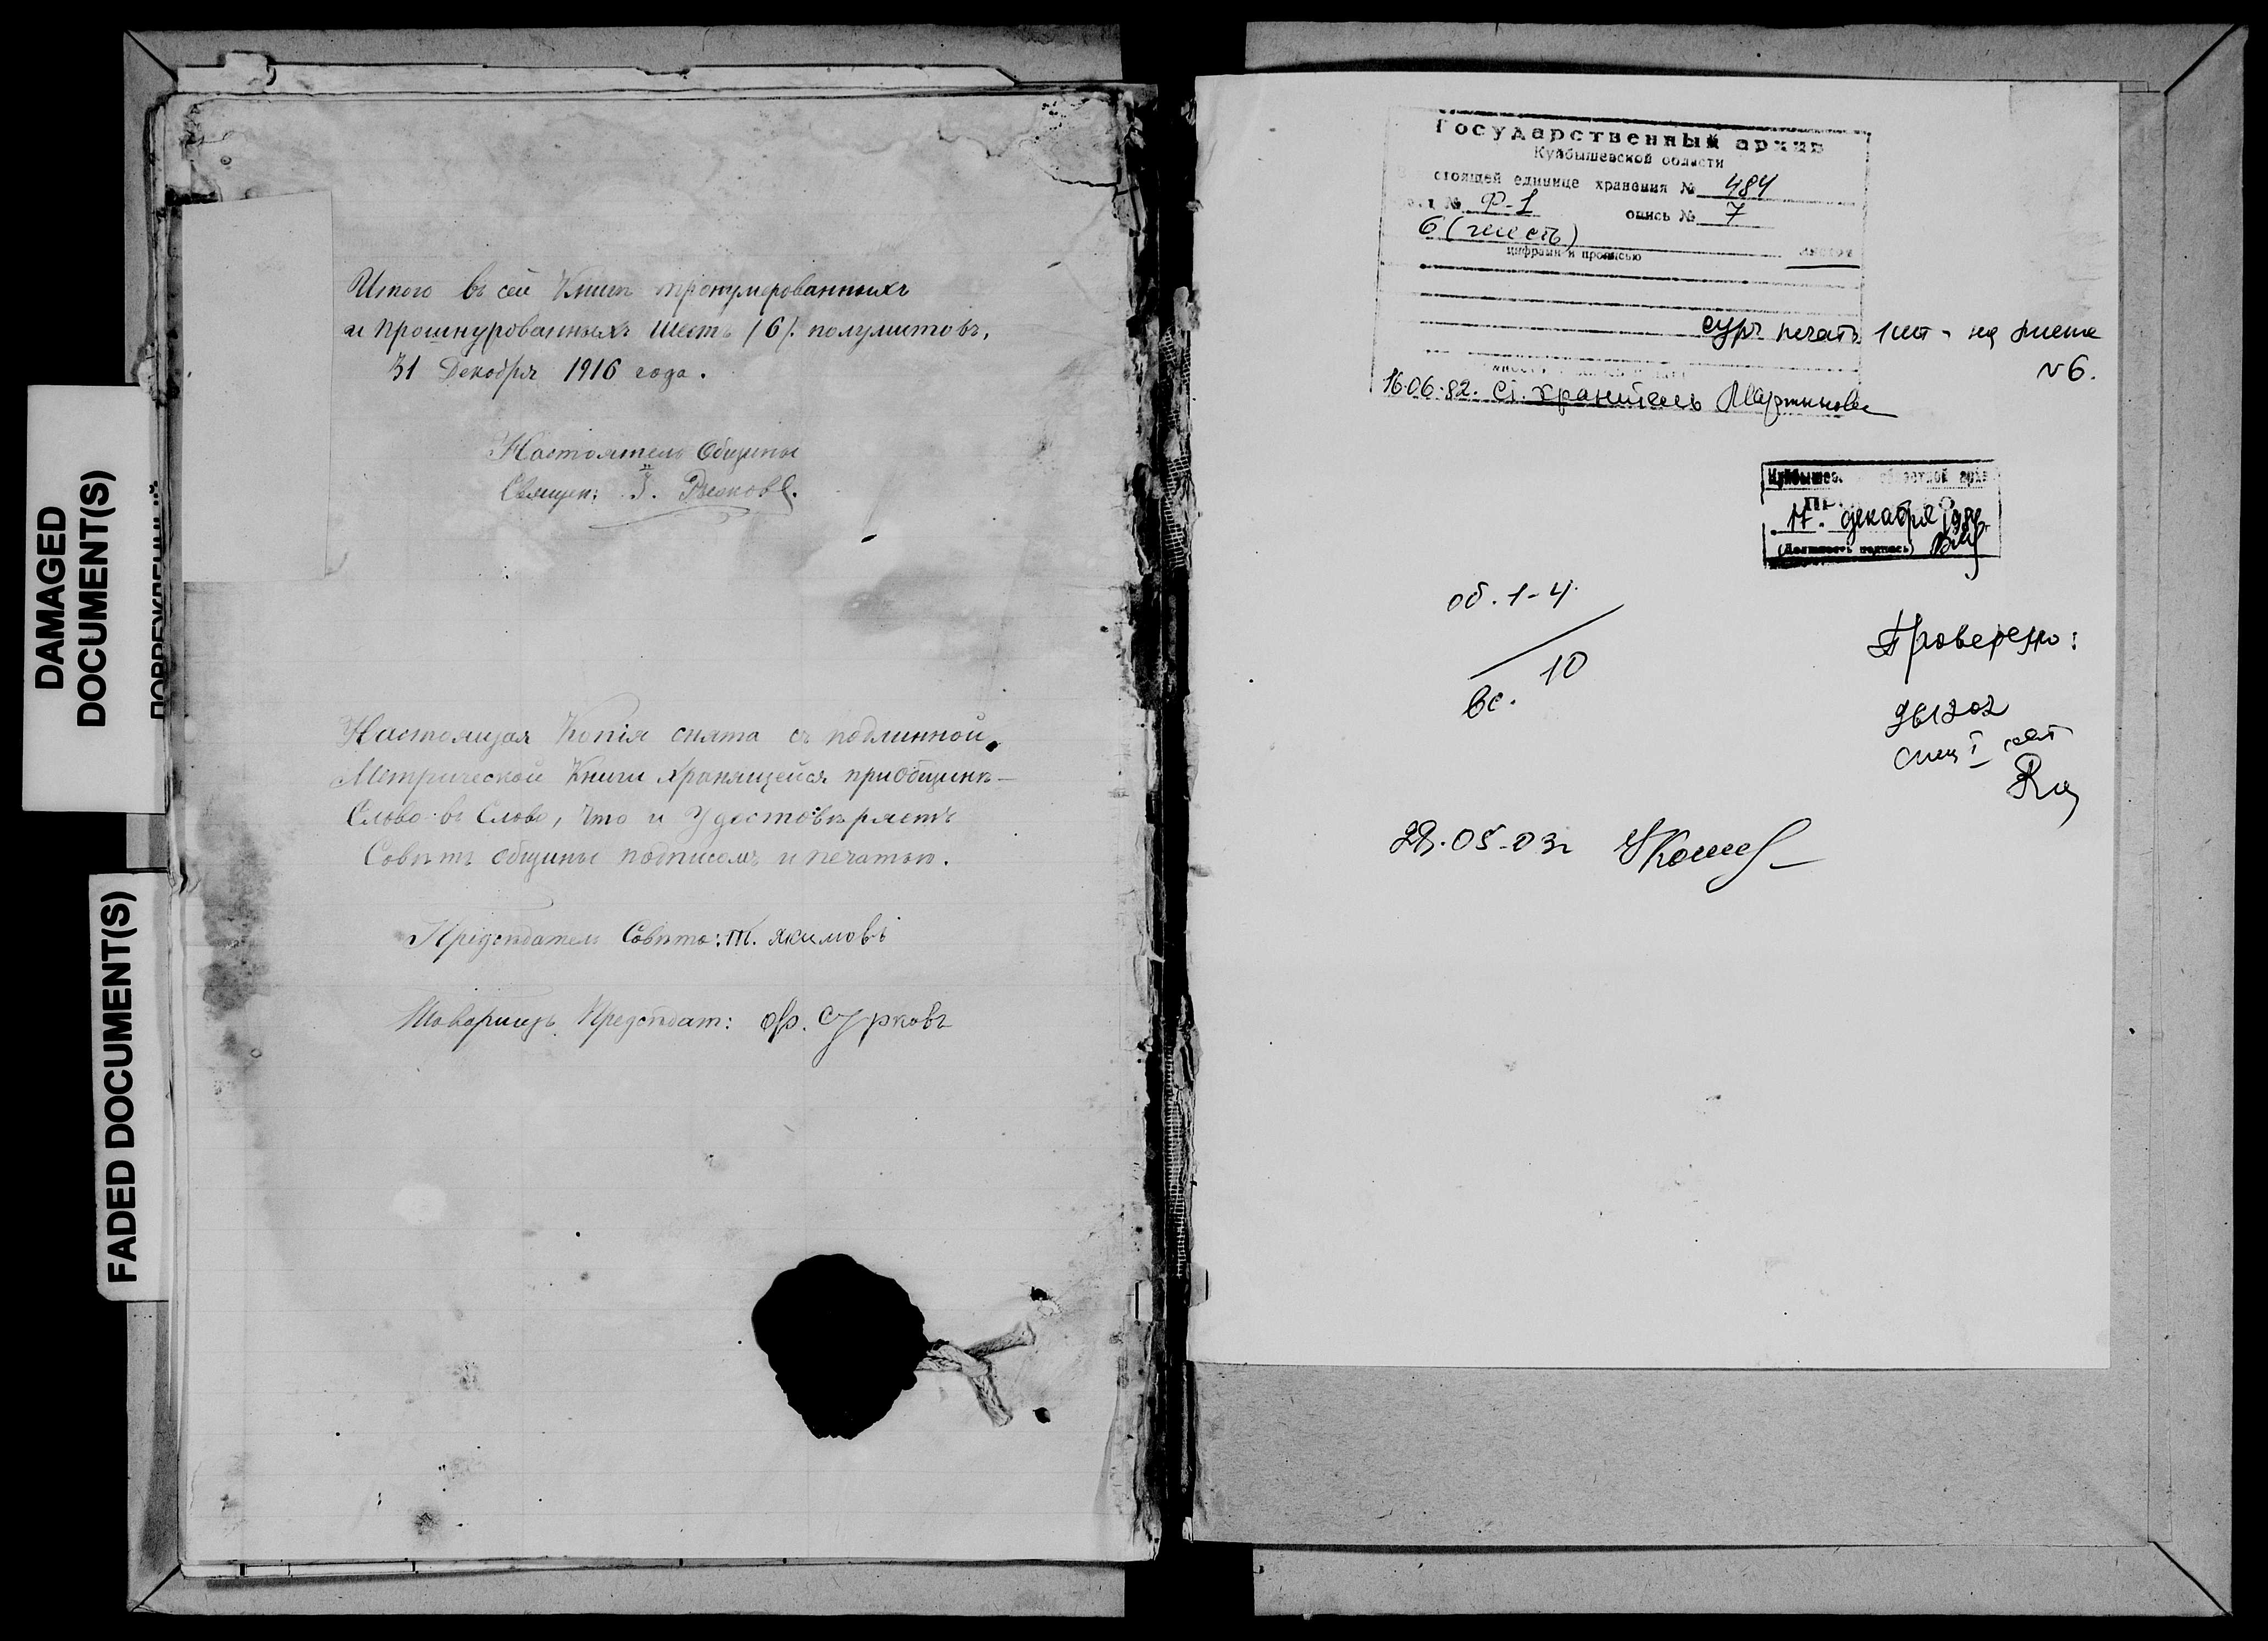 DAMAGED
DOCUMENT(S)
FADED DOCUMENT(S)
Итого въ сей Книги пронумерованныхъ
и прошнурованныхъ шесть /6/. полулистовъ.
31 Декабря 1916 года.
Настоятель Общины
Священ: І.
Настоящая Копія снята съ подлинной
Метрической Книги хранящейся при Общинѣ –
Слово въ Слово, что и Удостовѣряетъ
Совѣтъ общины подписемъ и печатью.
Предсѣдатель Совѣта: Т. Якимовъ
Товарищъ Предсѣдат: Ф. Сурковъ
Государственный архив
Куйбышевской области
стоящей единице хранения № 484
№ Ф-1 опись № 7
6 (шесть)
цифрами и прописью листов
сург. печать 1 шт - на листе
N 6.
16.06.82. Ст. хранитель Мартынова
17. декабря
(Должность подпись)
об. 1-4.
10
вс.
Проверено:
28.05.03г